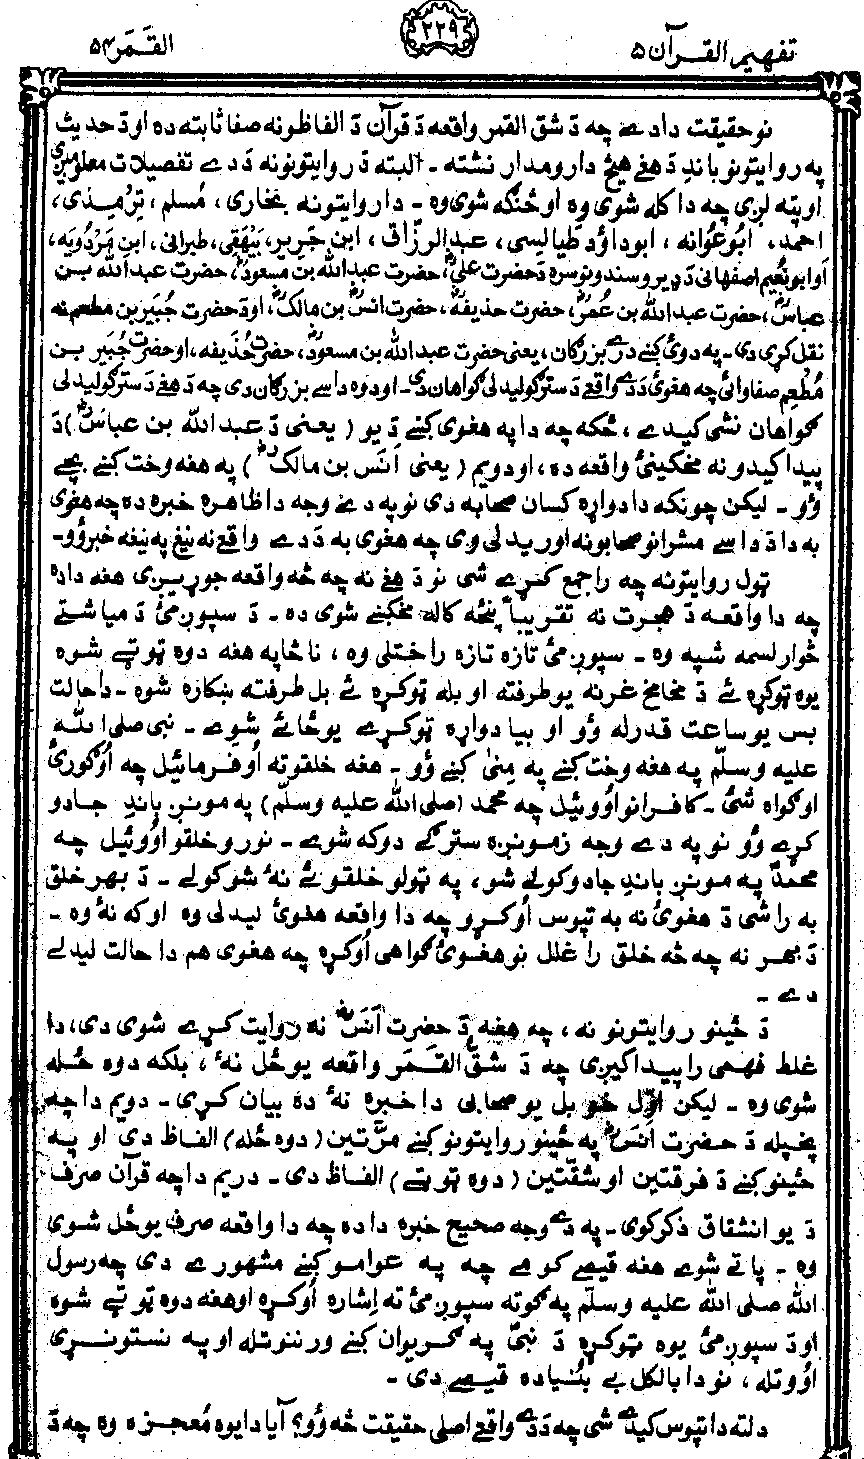 تفهيم القرآن ۵
۲۲۹
القَمَر ۵۴
نو حقيقت دا دے چه دَ شق القمر واقعه دَ قرآن دَ الفاظو نه صفا ثابته ده او دَ حديث
په روايتونو باندِ دَ هغے هيڅ دارومدار نشته ـ البته دَ روايتونو نه دَ دے تفصيلات معلوميږى
او پته لږى چه دا كله شوى وه او څنګه شوى وه ـ دا روايتونه بخارى، مُسلم، تِرمِذى،
احمد، ابُوعوَانه، ابوداؤد طيالِسى، عبدالرزّاق، ابن جَرِير، بَيْهقِى، طبرانى، ابن مَردُويَه،
اَو ابونُعيم اصفهانى دَ ډير و سندونو سره دَ حضرت علىؓ، حضرت عبدالله بن مسعودؓ، حضرت عبدالله بن
عباسؓ، حضرت عبدالله بن عُمرؓ، حضرت حذيفهؓ، حضرت انسؓ بن مالكؓ، او دَ حضرت جُبَير بن مطعم نه
نقل كړى دى ـ په دوئ كښے درے بزرګان، يعنى حضرت عبدالله بن مسعودؓ، حضرت حُذَيفه، او حضرت جُبَير بن
مُطعِم صفا وائى چه هغوئ دَ دے واقعے دَ سترګو ليدلى ګواهان دى ـ او دوه داسے بزرګان دى چه دَ هغے دَ سترګو ليدلى
ګواهان نشى كيدے، ځكه چه دا په هغوى كښے دَ يو (يعنى دَ عبدالله بن عباسؓ) دَ
پيدا كيدو نه مخكينئ واقعه ده، او دويم (يعنى اَنَس بن مالكؓ) په هغه وخت كښے بچے
وُو ـ ليكن چونكه دا دواړه كسان صحابه دى نو په دے وجه دا ظاهره خبره ده چه هغوى
به دا دَ داسے مشرانو صحابو نه اوريدلى وى چه هغوى به دَ دے واقعے نه نيغ په نيغه خبر وُو ـ
ټول روايتونه چه راجمع كړے شى نو دَ هغے نه چه څه واقعه جوړيږى هغه داده
چه دا واقعه دَ هجرت نه تقريباً پنځه كاله مخكښے شوى ده ـ دَ سپوږمئ دَ مياشتے
څوارلسمه شپه وه ـ سپوږمئ تازه تازه راختلى وه، ناڅاپه هغه دوه ټوټے شوه
يوه ټوكړه ئے دَ مخامخ غر نه يو طرفته او بله ټوكړه ئے بل طرفته ښكاره شوه ـ دا حالت
بس يو ساعت قدرله وُو او بيا دواړه ټوكړے يو ځائے شوے ـ نبى صلى الله
عليه وسلّم په هغه وخت كښے په مِنىٰ كښے وُو ـ هغه خلقو ته اُوفرمائيل چه اُوګورئ
او ګواه شئ ـ كافرانو اوُوئيل چه محمد (صلى الله عليه وسلّم) په مونږ باندِ جادو
كړے وُو نو په دے وجه زمونږه سترګے دوكه شوے ـ نورو خلقو اوُوئيل چه
محمدؐ په مونږ باندِ جادو كولے شو، په ټولو خلقو ئے نهٔ شو كولے ـ دَ بهر خلق
به راشى دَ هغوئ نه به تپوس اُوكړو چه دا واقعه هغوئ ليدلى وه او كه نهٔ وه ـ
دَ بهر نه چه څه خلق راغلل نو هغوئ ګواهى اُوكړه چه هغوى هم دا حالت ليدلے
دے ـ
دَ ځينو روايتونو نه، چه هغه دَ حضرت اَنَسؓ نه روايت كړے شوى دى، دا
غلط فهمى راپيدا كيږى چه دَ شقُّ القَمَر واقعه يو ځل نهٔ، بلكه دوه ځله
شوى وه ـ ليكن اوّل خو بل يو صحابى دا خبره نهٔ ده بيان كړى ـ دويم دا چه
پخپله دَ حضرت اَنسؓ په ځينو روايتونو كښے مرّتين (دوه ځله) الفاظ دى او په
ځينو كښے دَ فرقتين او شقّتين (دوه ټوټے) الفاظ دى ـ دريم دا چه قرآن صرف
دَ يو انشقاق ذكر كوى ـ په دے وجه صحيح خبره داده چه دا واقعه صرف يو ځل شوى
وه ـ پاتے شوے هغه قيصے كومے چه په عوامو كښے مشهورے دى چه رسول
الله صلى الله عليه وسلّم په ګوته سپوږمئ ته اِشاره اُوكړه او هغه دوه ټوټے شوه
او دَ سپوږمئ يوه ټوكړه دَ نبىؐ په ګريوان كښے ورننوتله او په نستوڼړى
اوُوتله، نو دا بالكل بے بُنياده قيصے دى ـ
دلته دا تپوس كيدے شى چه دَ دے واقعے اصلى حقيقت څه وُو؟ آيا دا يوه مُعجزه وه چه دَ